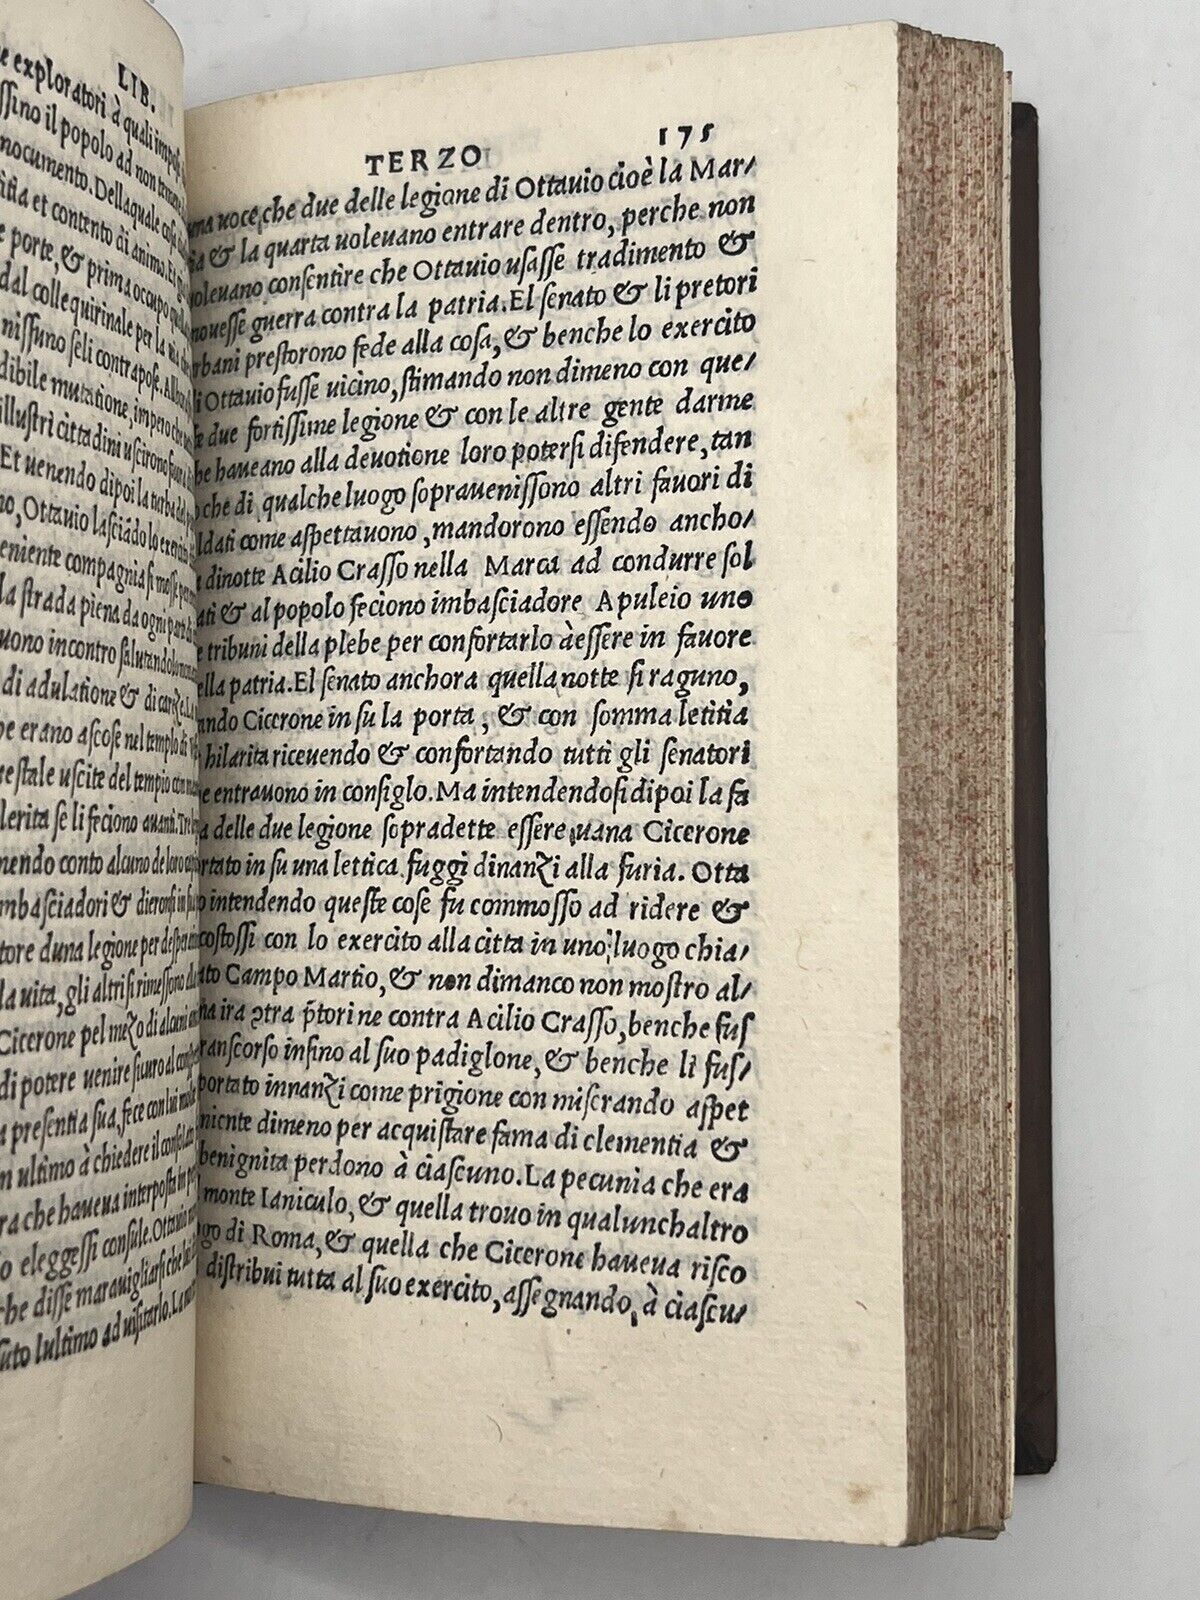 LIB.
e exploratori à quali impose
ssino il popolo ad non temere
nocumento. Dellaquale cosa
titia et contento di animo. Et
e porte, & prima occupo quella
dal colle quirinale per la uia
nissuno seli contrapose. Allhora
dibile mutatione, impero che
illustri cittadini uscirono fuora
Et uenendo dipoi la turba dal
no, Ottauio lasciādo lo exercito
eniente compagnia si mosse per
la strada piena da ogni parte di
uono incontro salutandolo non
di adulatione & di carẑe. La
he erano ascose nel templo di
re stale uscite del tempio con
lerita se li feciono auanti. Tre
nendo conto alcuno de loro
mbasciadori & dieronsi in su
tore duna legione per desper
la uita, gli altri si rimessono
Cicerone pel mezo di alcuni
di potere uenire sicuro al
a presentia sua, fece con lui
n ultimo à chiedere il consolato
ra che haueua interposta in
o eleggessi consule. Ottauio
che disse marauigliarsi che
suto lultimo ad uisitarlo. La
TERZO 175
una uoce, che due delle legione di Ottauio cioè la Mar/
ia & la quarta uoleuano entrare dentro, perche non
uoleuano consentire che Ottauio usasse tradimento &
mouesse guerra contra la patria. El senato & li pretori
rbani prestorono fede alla cosa, & benche lo exercito
li Ottauio fusse uicino, stimando non dimeno con que/
te due fortissime legione & con le altre gente darme
he haueano alla deuotione loro potersi difendere, tan
o che di qualche luogo soprauenissono altri fauori di
ldati come aspettauono, mandorono essendo ancho/
a dinotte Acilio Crasso nella Marca ad condurre sol
ati & al popolo feciono imbasciadore Apuleio uno
e tribuni della plebe per confortarlo àessere in fauore
ella patria. El senato anchora quella notte si raguno,
ando Cicerone in su la porta, & con somma letitia
hilarita riceuendo & confortando tutti gli senatori
he entrauono in consiglo. Ma intendendosi dipoi la fa
a delle due legione sopradette essere uana Cicerone
ortato in su una lettica fuggi dinanzi alla furia. Otta
o intendendo queste cose fu commosso ad ridere &
costossi con lo exercito alla citta in uno luogo chia/
ato Campo Martio, & non dimanco non mostro al/
na ira ɔtra p̄tori ne contra Acilio Crasso, benche fus
transcorso infino al suo padiglone, & benche li fus/
portato innanzi come prigione con miserando aspet
niente dimeno per acquistare fama di clementia &
benignita perdono à ciascuno. La pecunia che era
l monte Ianiculo, & quella trouo in qualunchaltro
ogo di Roma, & quella che Cicerone haueua risco
distribui tutta al suo exercito, assegnando, à ciascu/